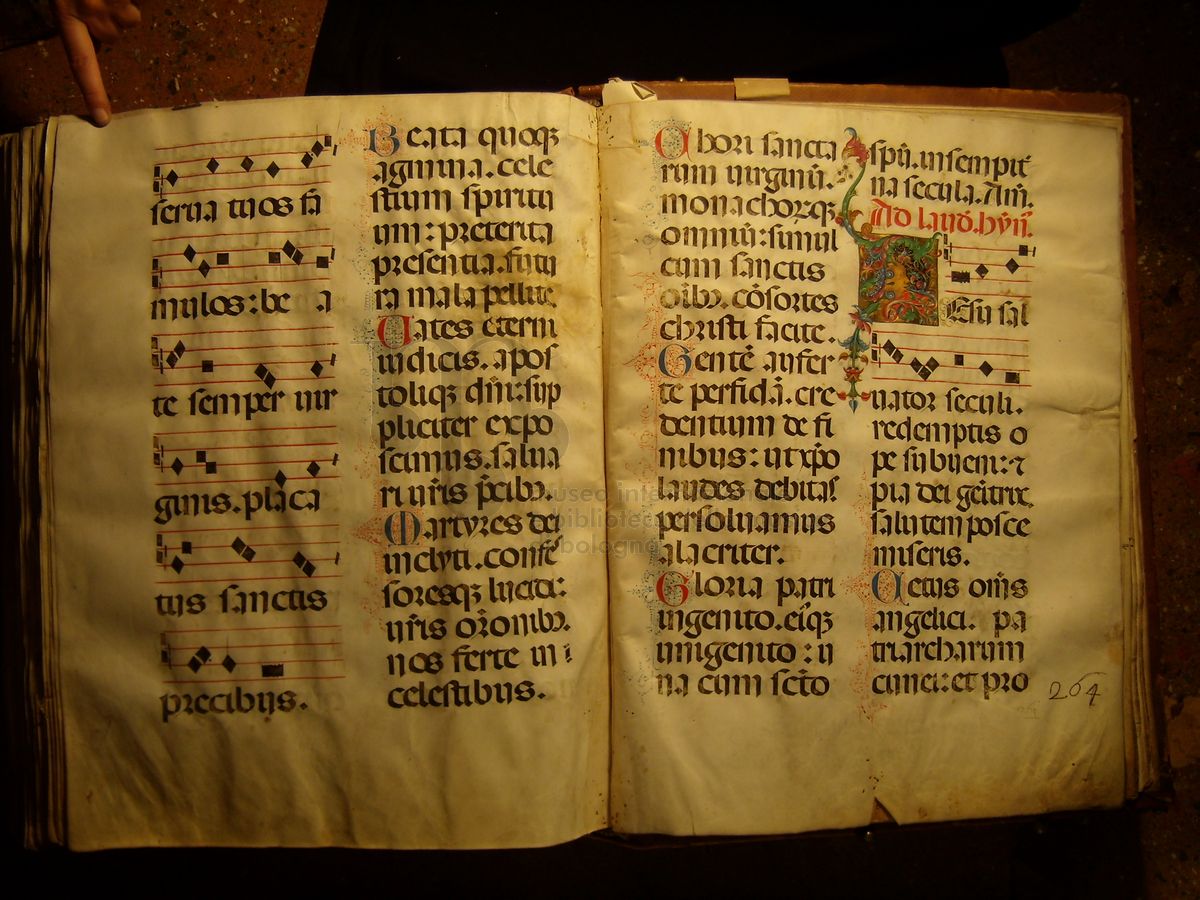 serua tuos fa
mulos: be a
te semper uir
ginis. placa
tus sanctis
precibus.
Beata quoqꝫ
agmina. cele
stium spiritu
um: preterita
presentia. futu
ra mala pellite.
Uates eterni
iudicis. apos
toliqꝫ dn̄i: sup
pliciter expo
scimus. salua
ri ur̄is p̄cibꝫ.
Martyres dei
inclyti. confes
soresqꝫ lucidi:
ur̄is or̄onibꝫ.
nos ferte in
celestibus.
Chori sancta
rum uirginū.
monachorꝫqꝫ
omniū: simul
cum sanctis
oībꝫ. cōsortes
christi facite.
Gentē aufer
te perfidā. cre
dentium de fi
nibus: ut xp̄o
laudes debitas
persoluamus
alacriter.
Gloria patri
ingenito. eiꝰqꝫ
unigenito: u
na cum sc̄to
spū. in sempit̄
na secula. Am̄.
Ad laud̄. hyn̄.
Iesu sal
uator seculi.
redemptis o
pe subueni: ⁊
pia dei gēitrix
salutem posce
miseris.
Cetus om̄is
angelici. pa
triarcharum
cunei: et pro
264
museo inte
biblioteca
bologna